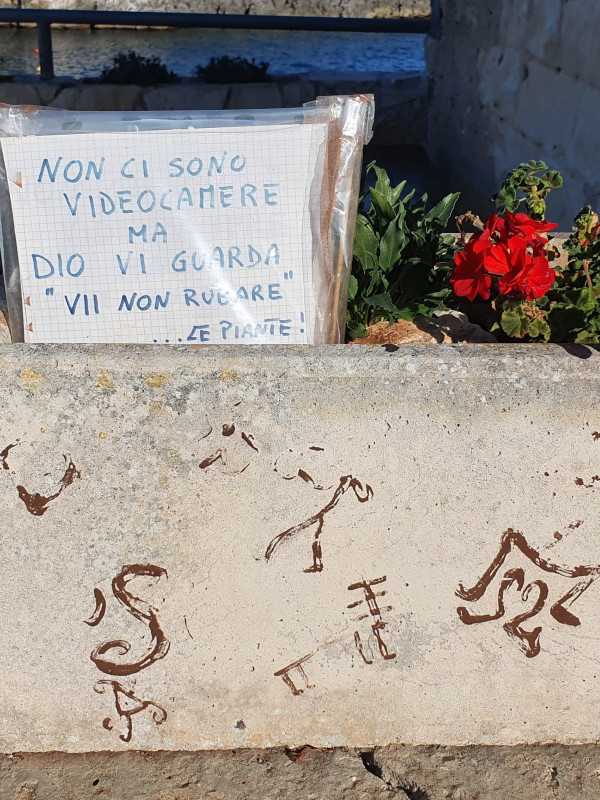 NON CI SONO
VIDEOCAMERE
MA
DIO VI GUARDA
"VII NON RUBARE"
...LE PIANTE!